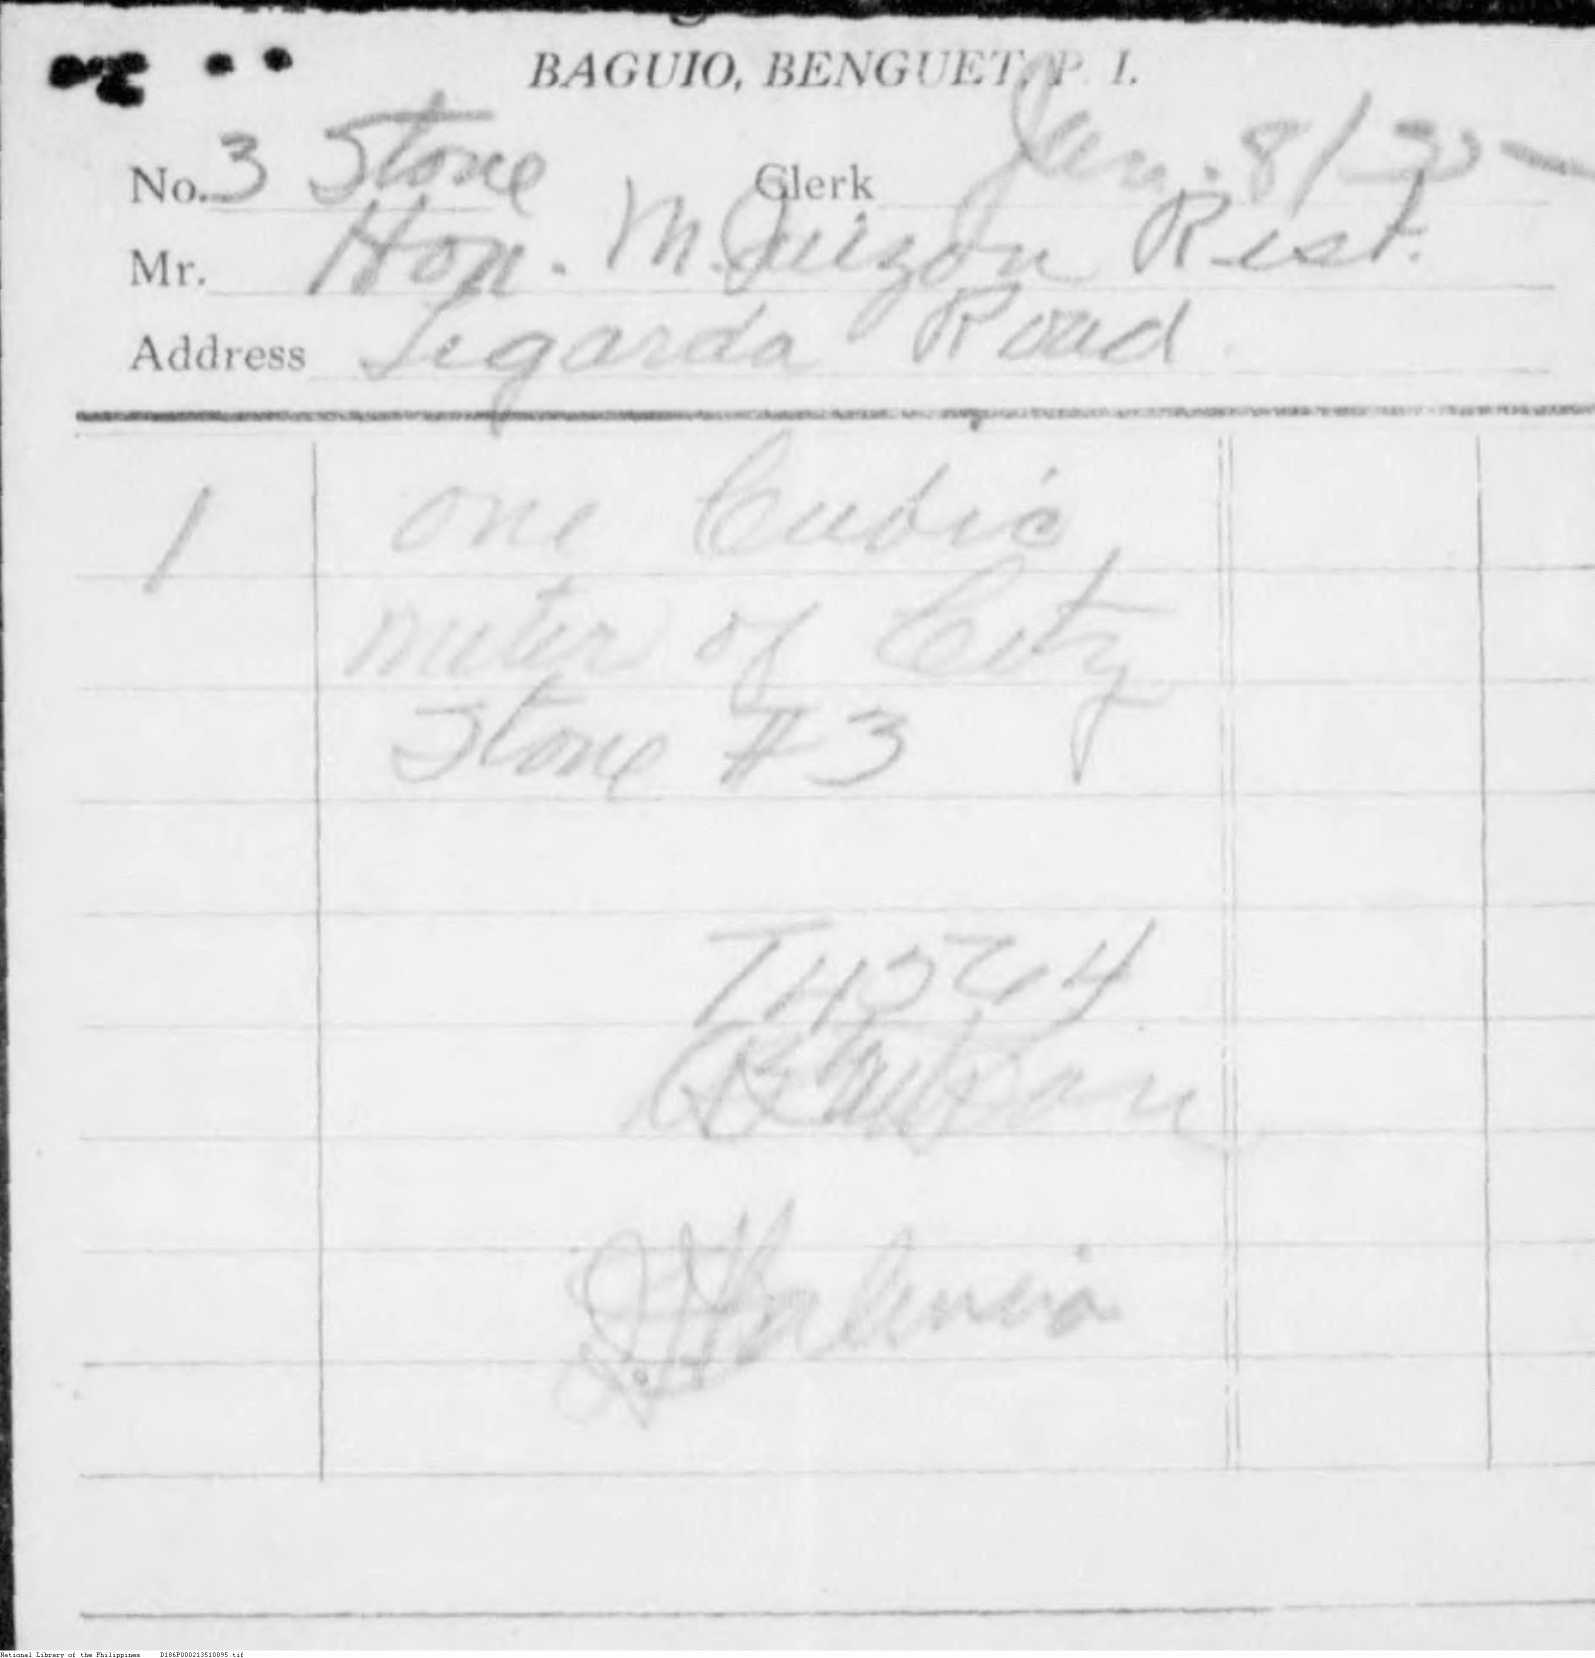 BAGUIO, BENGUET, P. I.
No. 3 Stone Clerk Jan. 8/35
Mr. Hon. M. Quizon Rest.
Address Legarda Road
1 one Cubic
meter of City
Stone #3
Valencia
National Library of the Philippines D186P000213510895.tif